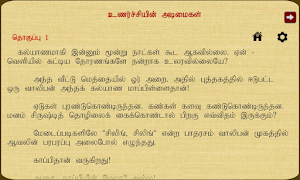 உணர்ச்சியின் அடிமைகள்
தொகுப்பு 1
கல்யாணமாகி இன்னும் மூன்று நாட்கள் கூட ஆகவில்லை. ஏன் -
வெளியில் கட்டிய தோரணங்களே நன்றாக உலரவில்லையே?
அந்த வீட்டு மெத்தையில் ஓர் அறை. அதில் புத்தகத்தில் ஈடுபட்ட
ஒரு வாலிபன் அந்தக் கல்யாண மாப்பிள்ளைதான்!
ஏடுகள் புரண்டுகொண்டிருந்தன. கண்கள் களவு கண்டுகொண்டிருந்தன.
மனம் சிருஷ்டித் தொழிலைக் கைக்கொண்டால் பிறகு எவ்விதம் இருக்கும்?
மேடைப்படிகளிலே "சிலிங், சிலிங்" என்ற பாதரசம் வாலிபன் முகத்தில்
ஆவலின் பரபரப்பு அலைபோல் எழுந்தது.
காப்பிதான் வருகிறது!